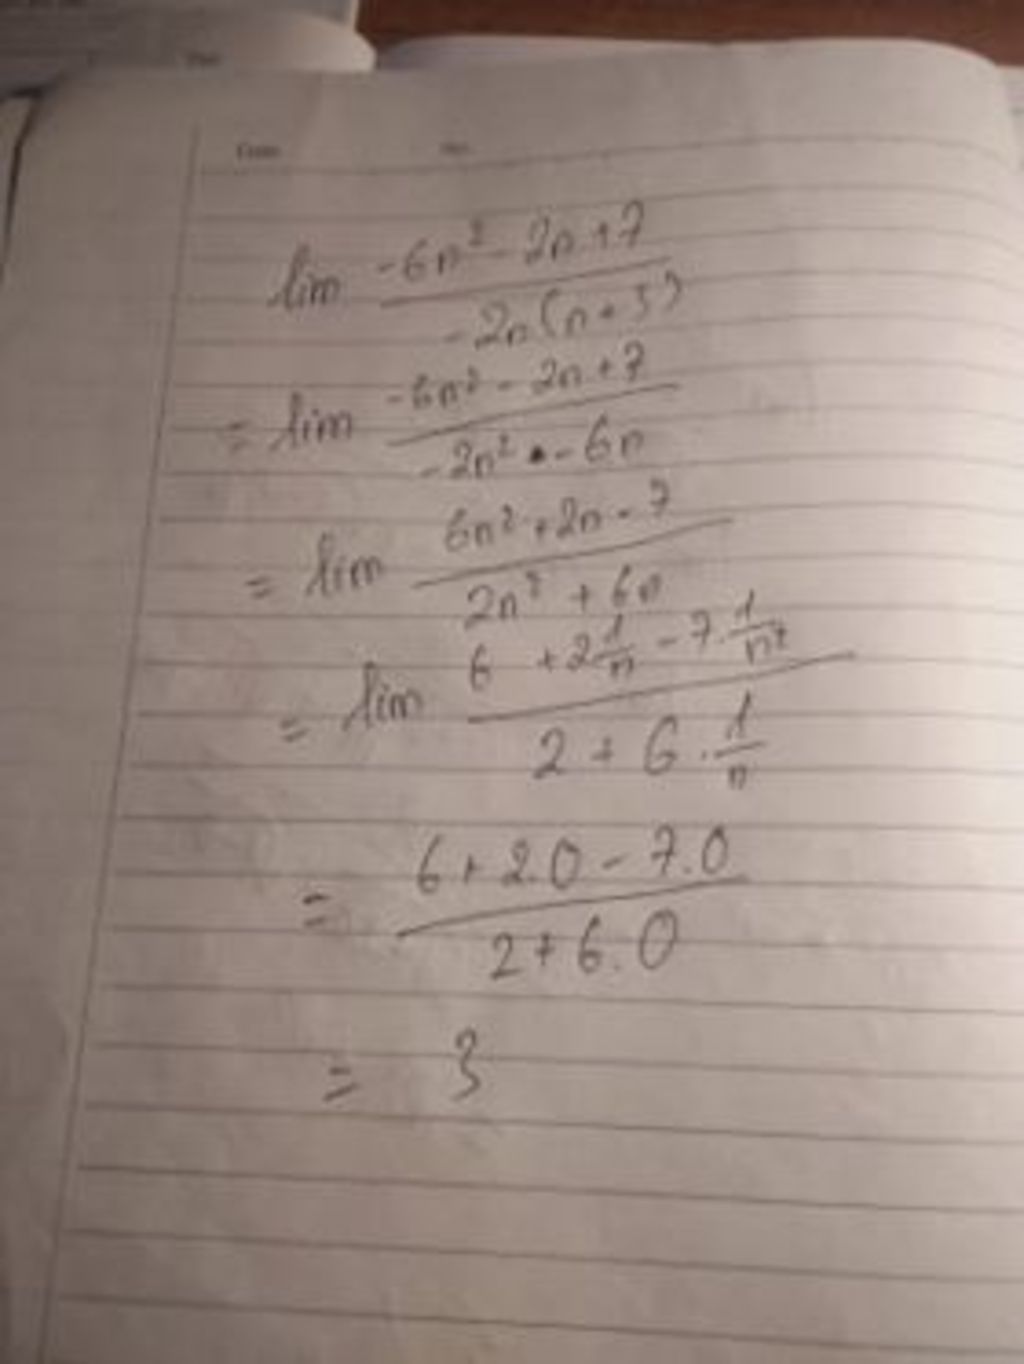 lim (-6n² - 2n + 7) / (-2n(n + 3))
= lim (-6n² - 2n + 7) / (-2n² - 6n)
= lim (6n² + 2n - 7) / (2n² + 6n)
= lim (6 + 2 1/n - 7 . 1/n²) / (2 + 6 . 1/n)
= (6 + 2.0 - 7.0) / (2 + 6.0)
= 3